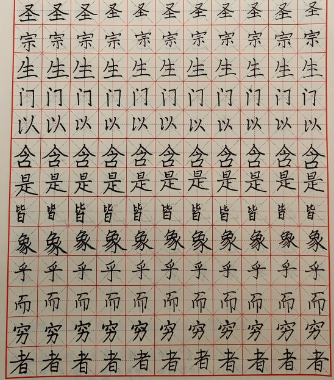 圣圣圣圣圣圣圣圣圣圣圣
宗宗宗宗宗宗宗宗宗宗宗
生生生生生生生生生生生
门门门门门门门门门门门
以以以以以以以以以以以
含含含含含含含含含含含
是是是是是是是是是是是
皆皆皆皆皆皆皆皆皆皆皆
象象象象象象象象象象象
乎乎乎乎乎乎乎乎乎乎乎
而而而而而而而而而而而
穷穷穷穷穷穷穷穷穷穷穷
者者者者者者者者者者者